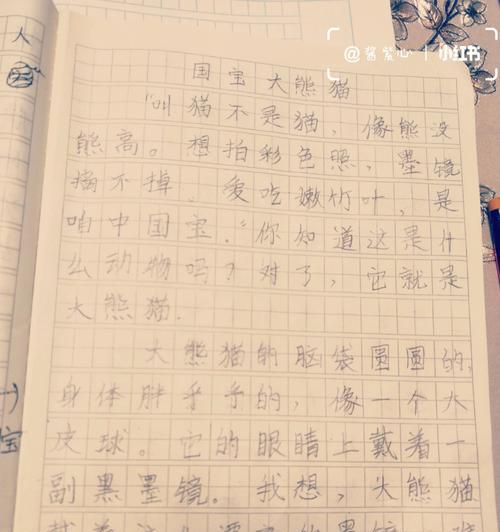 人
@酱紫心 | 小红书
国宝大熊猫
"叫猫不是猫,像熊没
熊高。想拍彩色照,墨镜
摘不掉。爱吃嫩竹叶,是
咱中国宝。"你知道这是什
么动物吗?对了,它就是
大熊猫.
大熊猫的脑袋圆圆的,
身体胖乎乎的,像一个大
皮球。它的眼睛上戴着一
副黑墨镜。我想,大熊猫
宝